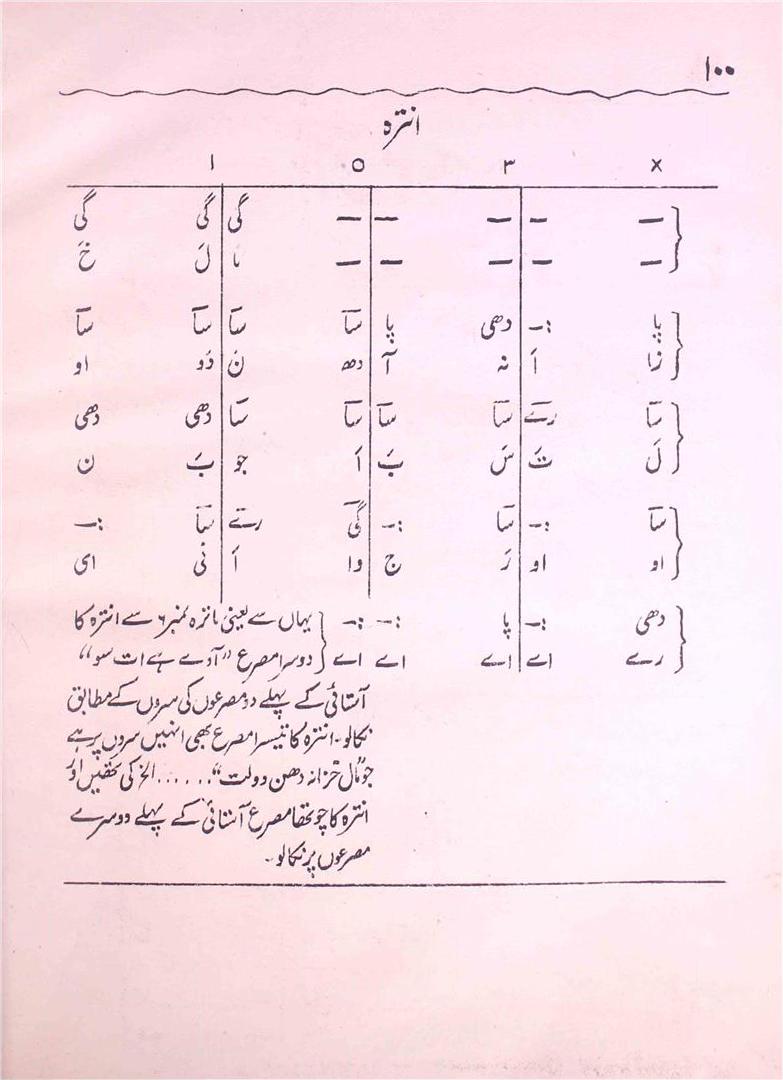 ۱۰۰
انترہ
× ۳ ० ۱
— – — – — گی گی گی
— — — — — مَا لَ خَ
پا :- دھی پا سآ سآ سآ سآ
زا اَ نہ آ دھ نَ دَو او
سآ رےٓ سآ سآ سآ سآ دھی دھی
لَ تَ سَ بَ اَ جو بَ ن
سآ :- سآ :- گیٓ رےٓ سآ :-
او او رَ ج وا اَ نی ای
دھی :- پا :- :- یہاں سے یعنی ماترہ نمبر ۶ سے انترہ کا
رے اے اے اے اے دوسرا مصرع ”آوے ہے ات سو“
آستائی کے پہلے دو مصرعوں کی سروں کے مطابق
نکالو۔ انترہ کا تیسرا مصرع بھی انہیں سروں پر ہے
جو ”مال خزانہ دھن دولت“...... الخ کی تھیں اور
انترہ کا چوتھا مصرع آستائی کے پہلے دوسرے
مصرعوں پر نکالو۔